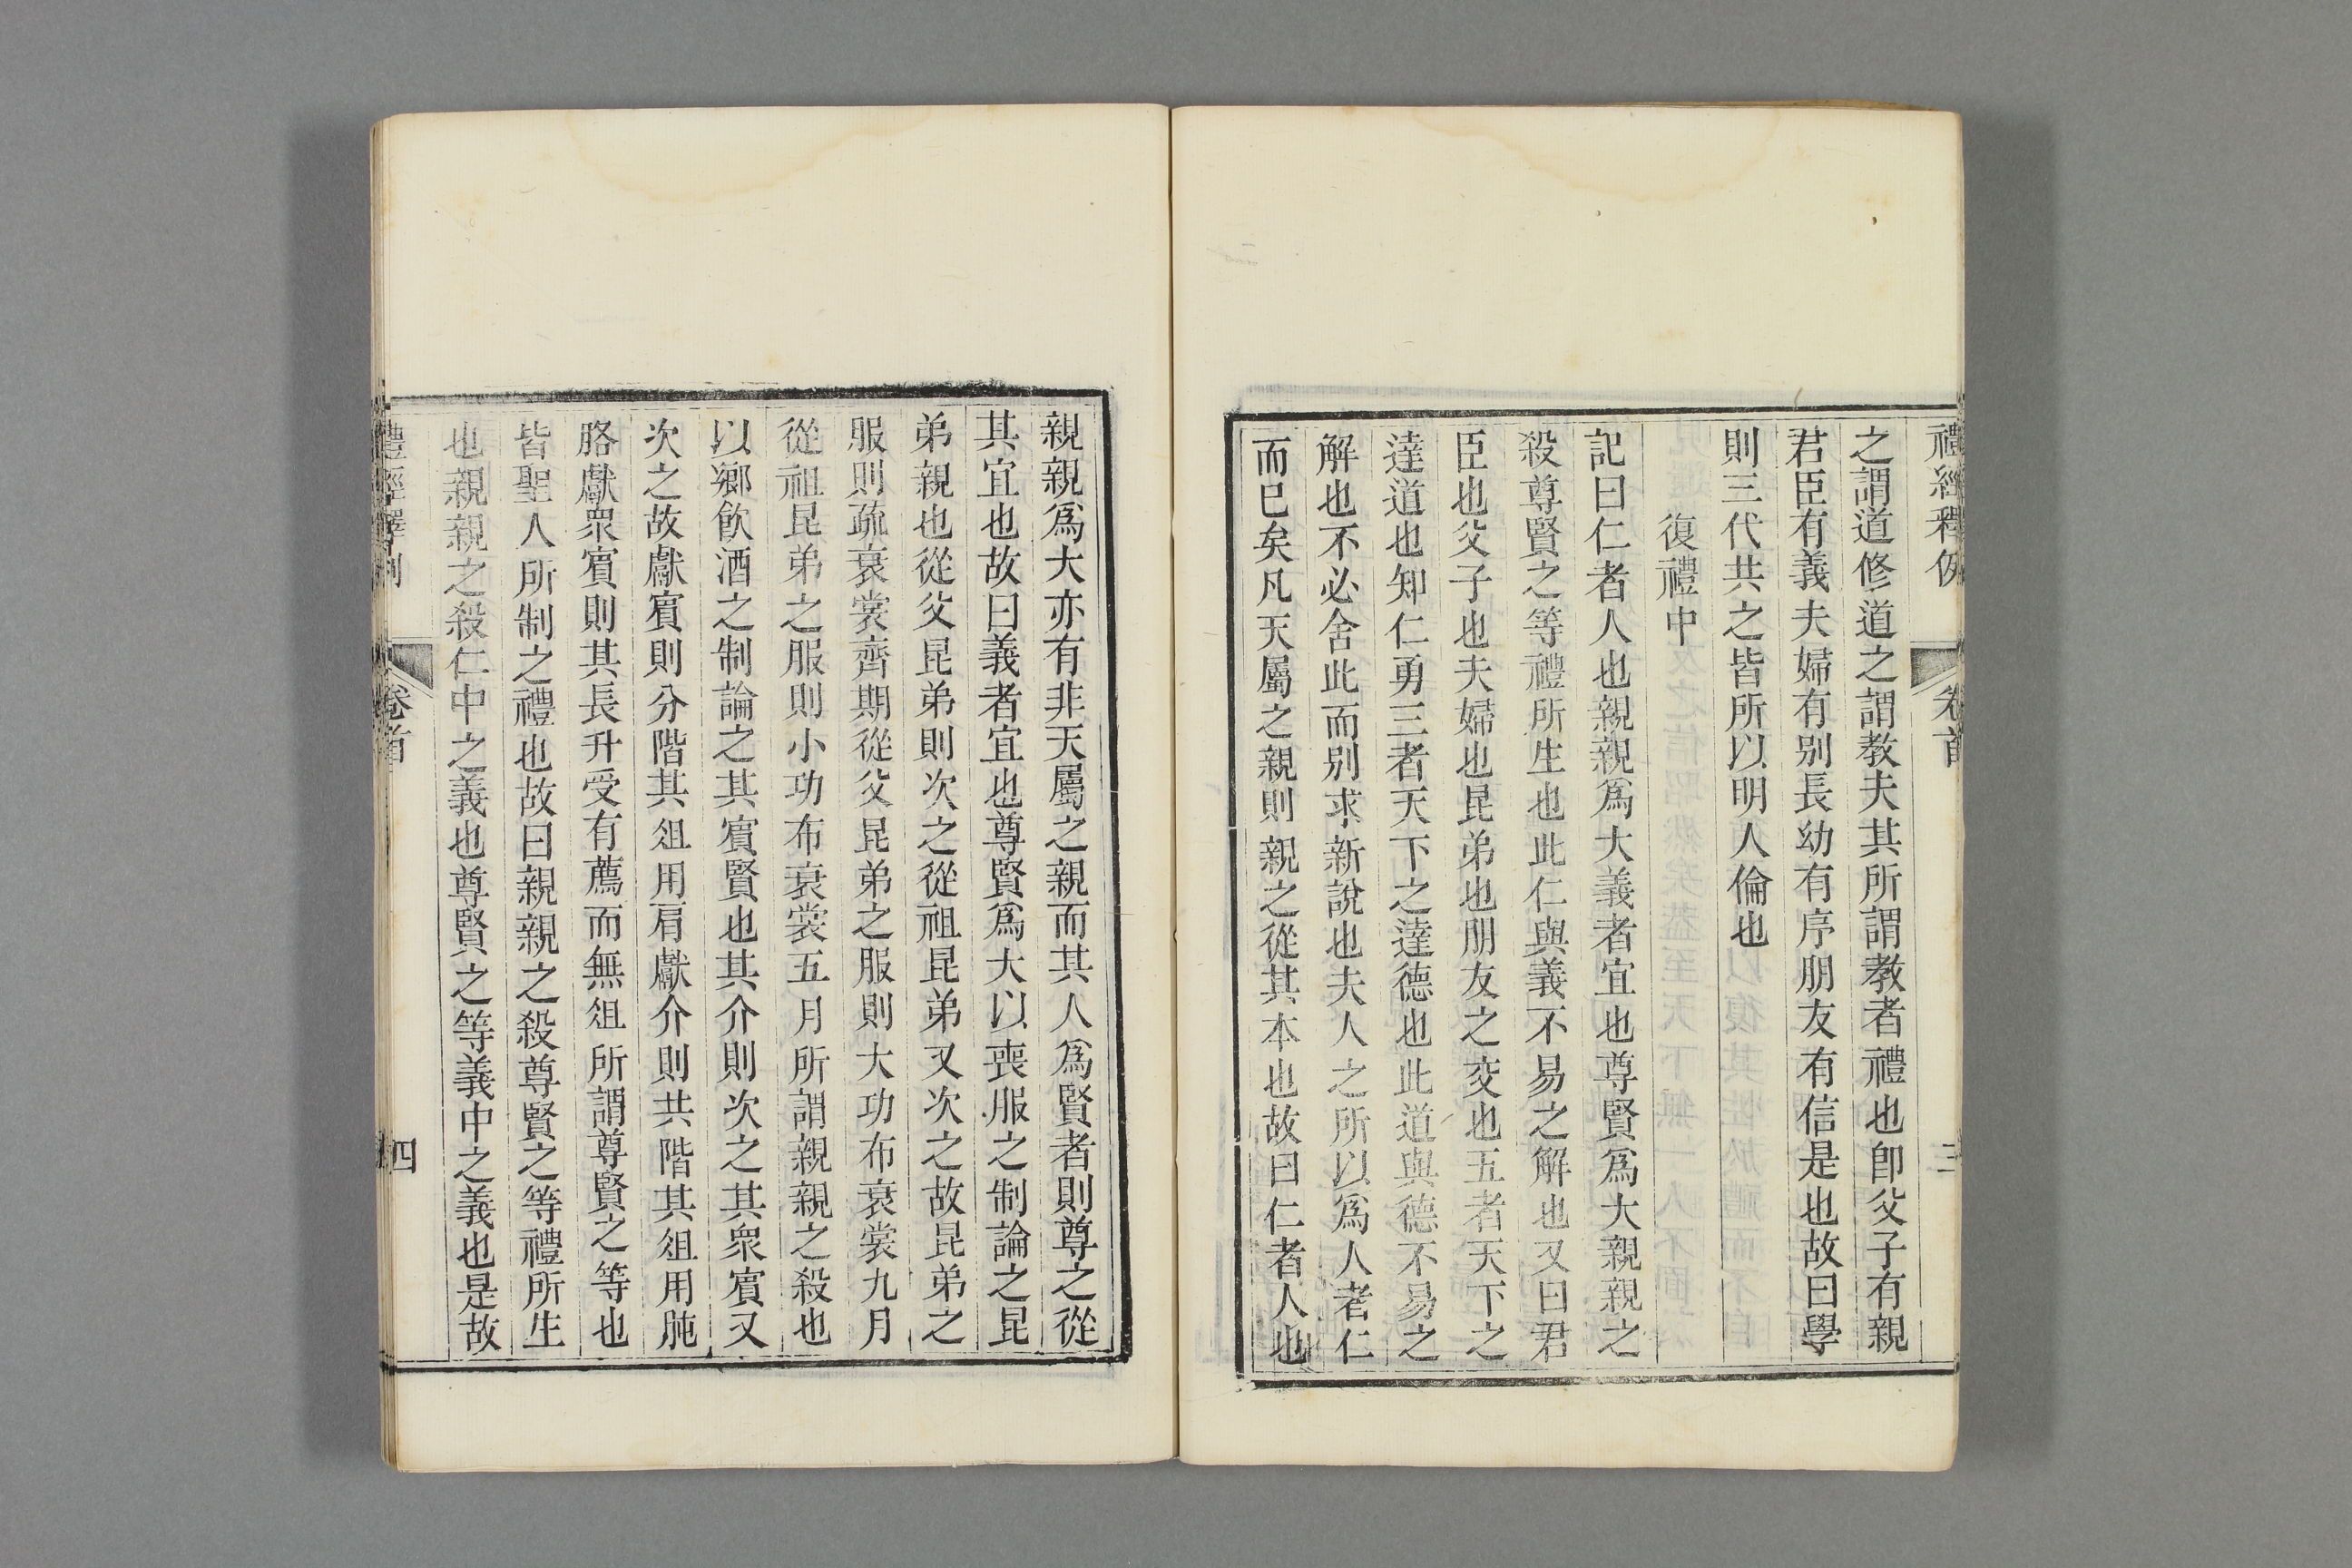 禮經釋例 卷首 三
之謂道修道之謂教夫其所謂教者禮也卽父子有親
君臣有義夫婦有別長幼有序朋友有信是也故曰學
則三代共之皆所以明人倫也
復禮中
記曰仁者人也親親爲大義者宜也尊賢爲大親親之
殺尊賢之等禮所生也此仁與義不易之解也又曰君
臣也父子也夫婦也昆弟也朋友之交也五者天下之
達道也知仁勇三者天下之達德也此道與德不易之
解也不必舍此而別求新說也夫人之所以爲人者仁
而已矣凡天屬之親則親之從其本也故曰仁者人也
親親爲大亦有非天屬之親而其人爲賢者則尊之從
其宜也故曰義者宜也尊賢爲大以喪服之制論之昆
弟親也從父昆弟則次之從祖昆弟又次之故昆弟之
服則疏衰裳齊期從父昆弟之服則大功布衰裳九月
從祖昆弟之服則小功布衰裳五月所謂親親之殺也
以鄉飲酒之制論之其賓賢也其介則次之其眾賓又
次之故獻賓則分階其俎用肩獻介則共階其俎用肫
胳獻眾賓則其長升受有薦而無俎所謂尊賢之等也
皆聖人所制之禮也故曰親親之殺尊賢之等禮所生
也親親之殺仁中之義也尊賢之等義中之義也是故
禮經釋例 卷首 四